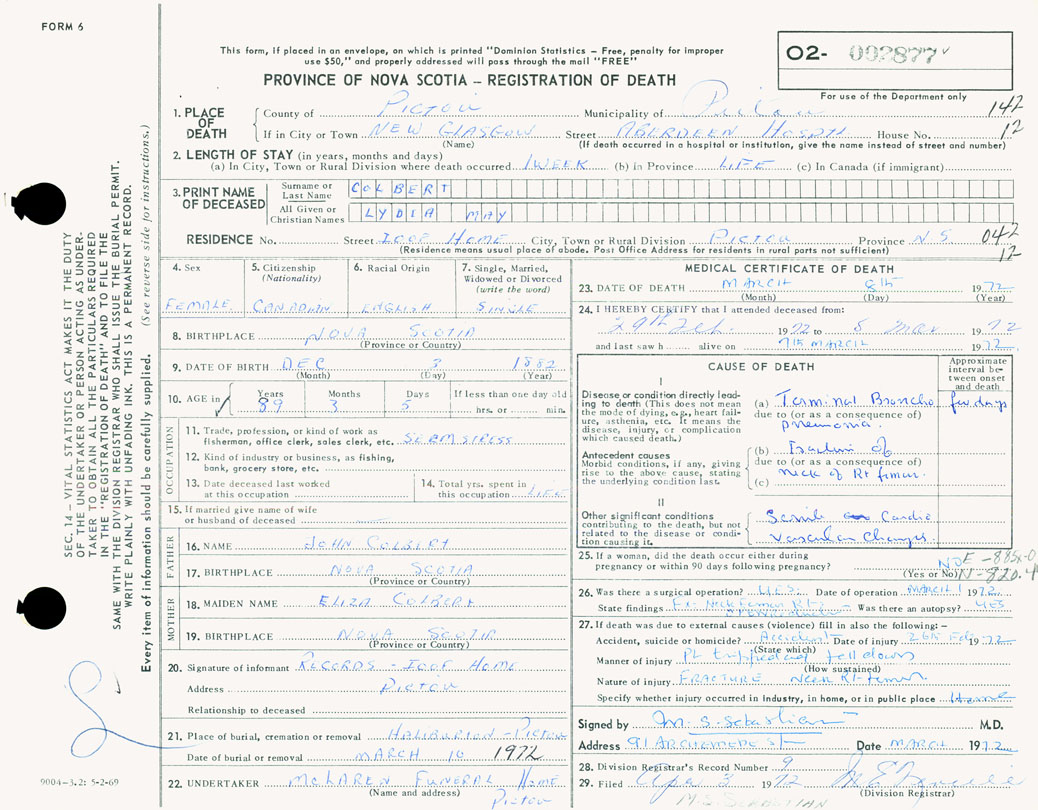 FORM 6
This form, if placed in an envelope, on which is printed "Dominion Statistics – Free, penalty for improper
use $50," and properly addressed will pass through the mail "FREE"
O2- 002877
For use of the Department only
PROVINCE OF NOVA SCOTIA – REGISTRATION OF DEATH
1. PLACE OF DEATH County of PICTOU Municipality of Pictou 142
If in City or Town NEW GLASGOW Street ABERDEEN HOSPTL House No. 12
(Name) (If death occurred in a hospital or institution, give the name instead of street and number)
2. LENGTH OF STAY (in years, months and days)
(a) In City, Town or Rural Division where death occurred 1 WEEK (b) in Province LIFE (c) In Canada (if immigrant)
3. PRINT NAME OF DECEASED Surname or Last Name COLBERT
All Given or Christian Names LYDIA MAY
RESIDENCE No. Street IOOF HOME City, Town or Rural Division PICTOU Province N S 042
(Residence means usual place of abode. Post Office Address for residents in rural parts not sufficient) 12
4. Sex FEMALE
5. Citizenship (Nationality) CANADIAN
6. Racial Origin ENGLISH
7. Single, Married, Widowed or Divorced (write the word) SINGLE
8. BIRTHPLACE NOVA SCOTIA
(Province or Country)
9. DATE OF BIRTH DEC 3 1882
(Month) (Day) (Year)
10. AGE in Years Months Days If less than one day old
89 3 5 hrs. or min.
OCCUPATION
11. Trade, profession, or kind of work as
fisherman, office clerk, sales clerk, etc. SEAMSTRESS
12. Kind of industry or business, as fishing,
bank, grocery store, etc.
13. Date deceased last worked
at this occupation
14. Total yrs. spent in
this occupation LIFE
15. If married give name of wife
or husband of deceased
FATHER
16. NAME JOHN COLBERT
17. BIRTHPLACE NOVA SCOTIA
(Province or Country)
MOTHER
18. MAIDEN NAME ELIZA COLBERT
19. BIRTHPLACE NOVA SCOTIA
(Province or Country)
20. Signature of informant RECORDS - IOOF HOME
Address PICTOU
Relationship to deceased
21. Place of burial, cremation or removal HALIBURTON - PICTOU
Date of burial or removal MARCH 10 1972
22. UNDERTAKER McLAREN FUNERAL HOME
(Name and address) PICTOU
MEDICAL CERTIFICATE OF DEATH
23. DATE OF DEATH MARCH 8th 1972
(Month) (Day) (Year)
24. I HEREBY CERTIFY that I attended deceased from:
29th Feb. 1972 to 8 Mar 1972
and last saw h alive on 7th MARCH 1972
CAUSE OF DEATH
Approximate interval between onset and death
I
Disease or condition directly leading to death (This does not mean
the mode of dying, e.g., heart failure, asthenia, etc. It means the
disease, injury, or complication
which caused death.)
(a) Terminal Broncho few days
due to (or as a consequence of)
pneumonia.
Antecedent causes
Morbid conditions, if any, giving
rise to the above cause, stating
the underlying condition last.
(b) Fracture of
due to (or as a consequence of)
neck of Rt femur.
(c)
II
Other significant conditions
contributing to the death, but not
related to the disease or condition causing it.
Senile Cardio
Vascular Changes
25. If a woman, did the death occur either during
pregnancy or within 90 days following pregnancy? NO
(Yes or No)
E-885x-0
26. Was there a surgical operation? YES. Date of operation MARCH 1 1972
State findings Fx. Neck Femur Rt Was there an autopsy? YES
27. If death was due to external causes (violence) fill in also the following:–
Accident, suicide or homicide? Accident Date of injury 26th Feb 1972
(State which)
Manner of injury Pt tripped and fell down
(How sustained)
Nature of injury FRACTURE NECK Rt femur
Specify whether injury occurred in industry, in home, or in public place Home
Signed by M. S. Sebastian M.D.
Address 91 ARCHEMEDE St Date MARCH 1972
28. Division Registrar's Record Number 9
29. Filed Apr 3 1972
(Division Registrar)
M.S. SEBASTIAN
SEC. 14 – VITAL STATISTICS ACT MAKES IT THE DUTY
OF THE UNDERTAKER OR PERSON ACTING AS UNDER-
TAKER TO OBTAIN ALL THE PARTICULARS REQUIRED
IN THE "REGISTRATION OF DEATH" AND TO FILE THE
SAME WITH THE DIVISION REGISTRAR WHO SHALL ISSUE THE BURIAL PERMIT.
WRITE PLAINLY WITH UNFADING INK. THIS IS A PERMANENT RECORD.
Every item of information should be carefully supplied. (See reverse side for instructions.)
9004-3.2: 5-2-69